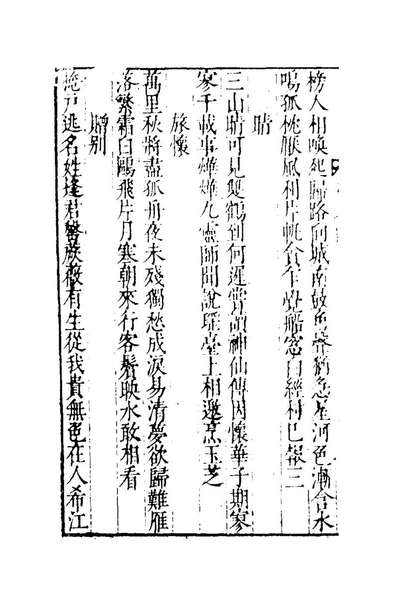 榜人相喚起歸路向城南鼓角聲猶急星河色漸含水
鳴孤枕候風利片帆貪乍覺船窓白經村已報三
晴
三山晴可見雙鶴到何遲嘗讀神仙傳因懷華子期寥
寥千載事燁燁九靈師聞說瑶臺上相邀烹玉芝
旅懷
萬里秋將盡孤舟夜未殘獨愁成淚易清夢欲歸難雁
落繁霜白鷗飛片月寒朝來行客鬢映水敢相看
贈别
戶逃名姓逢君有生從我貴無色在人希江